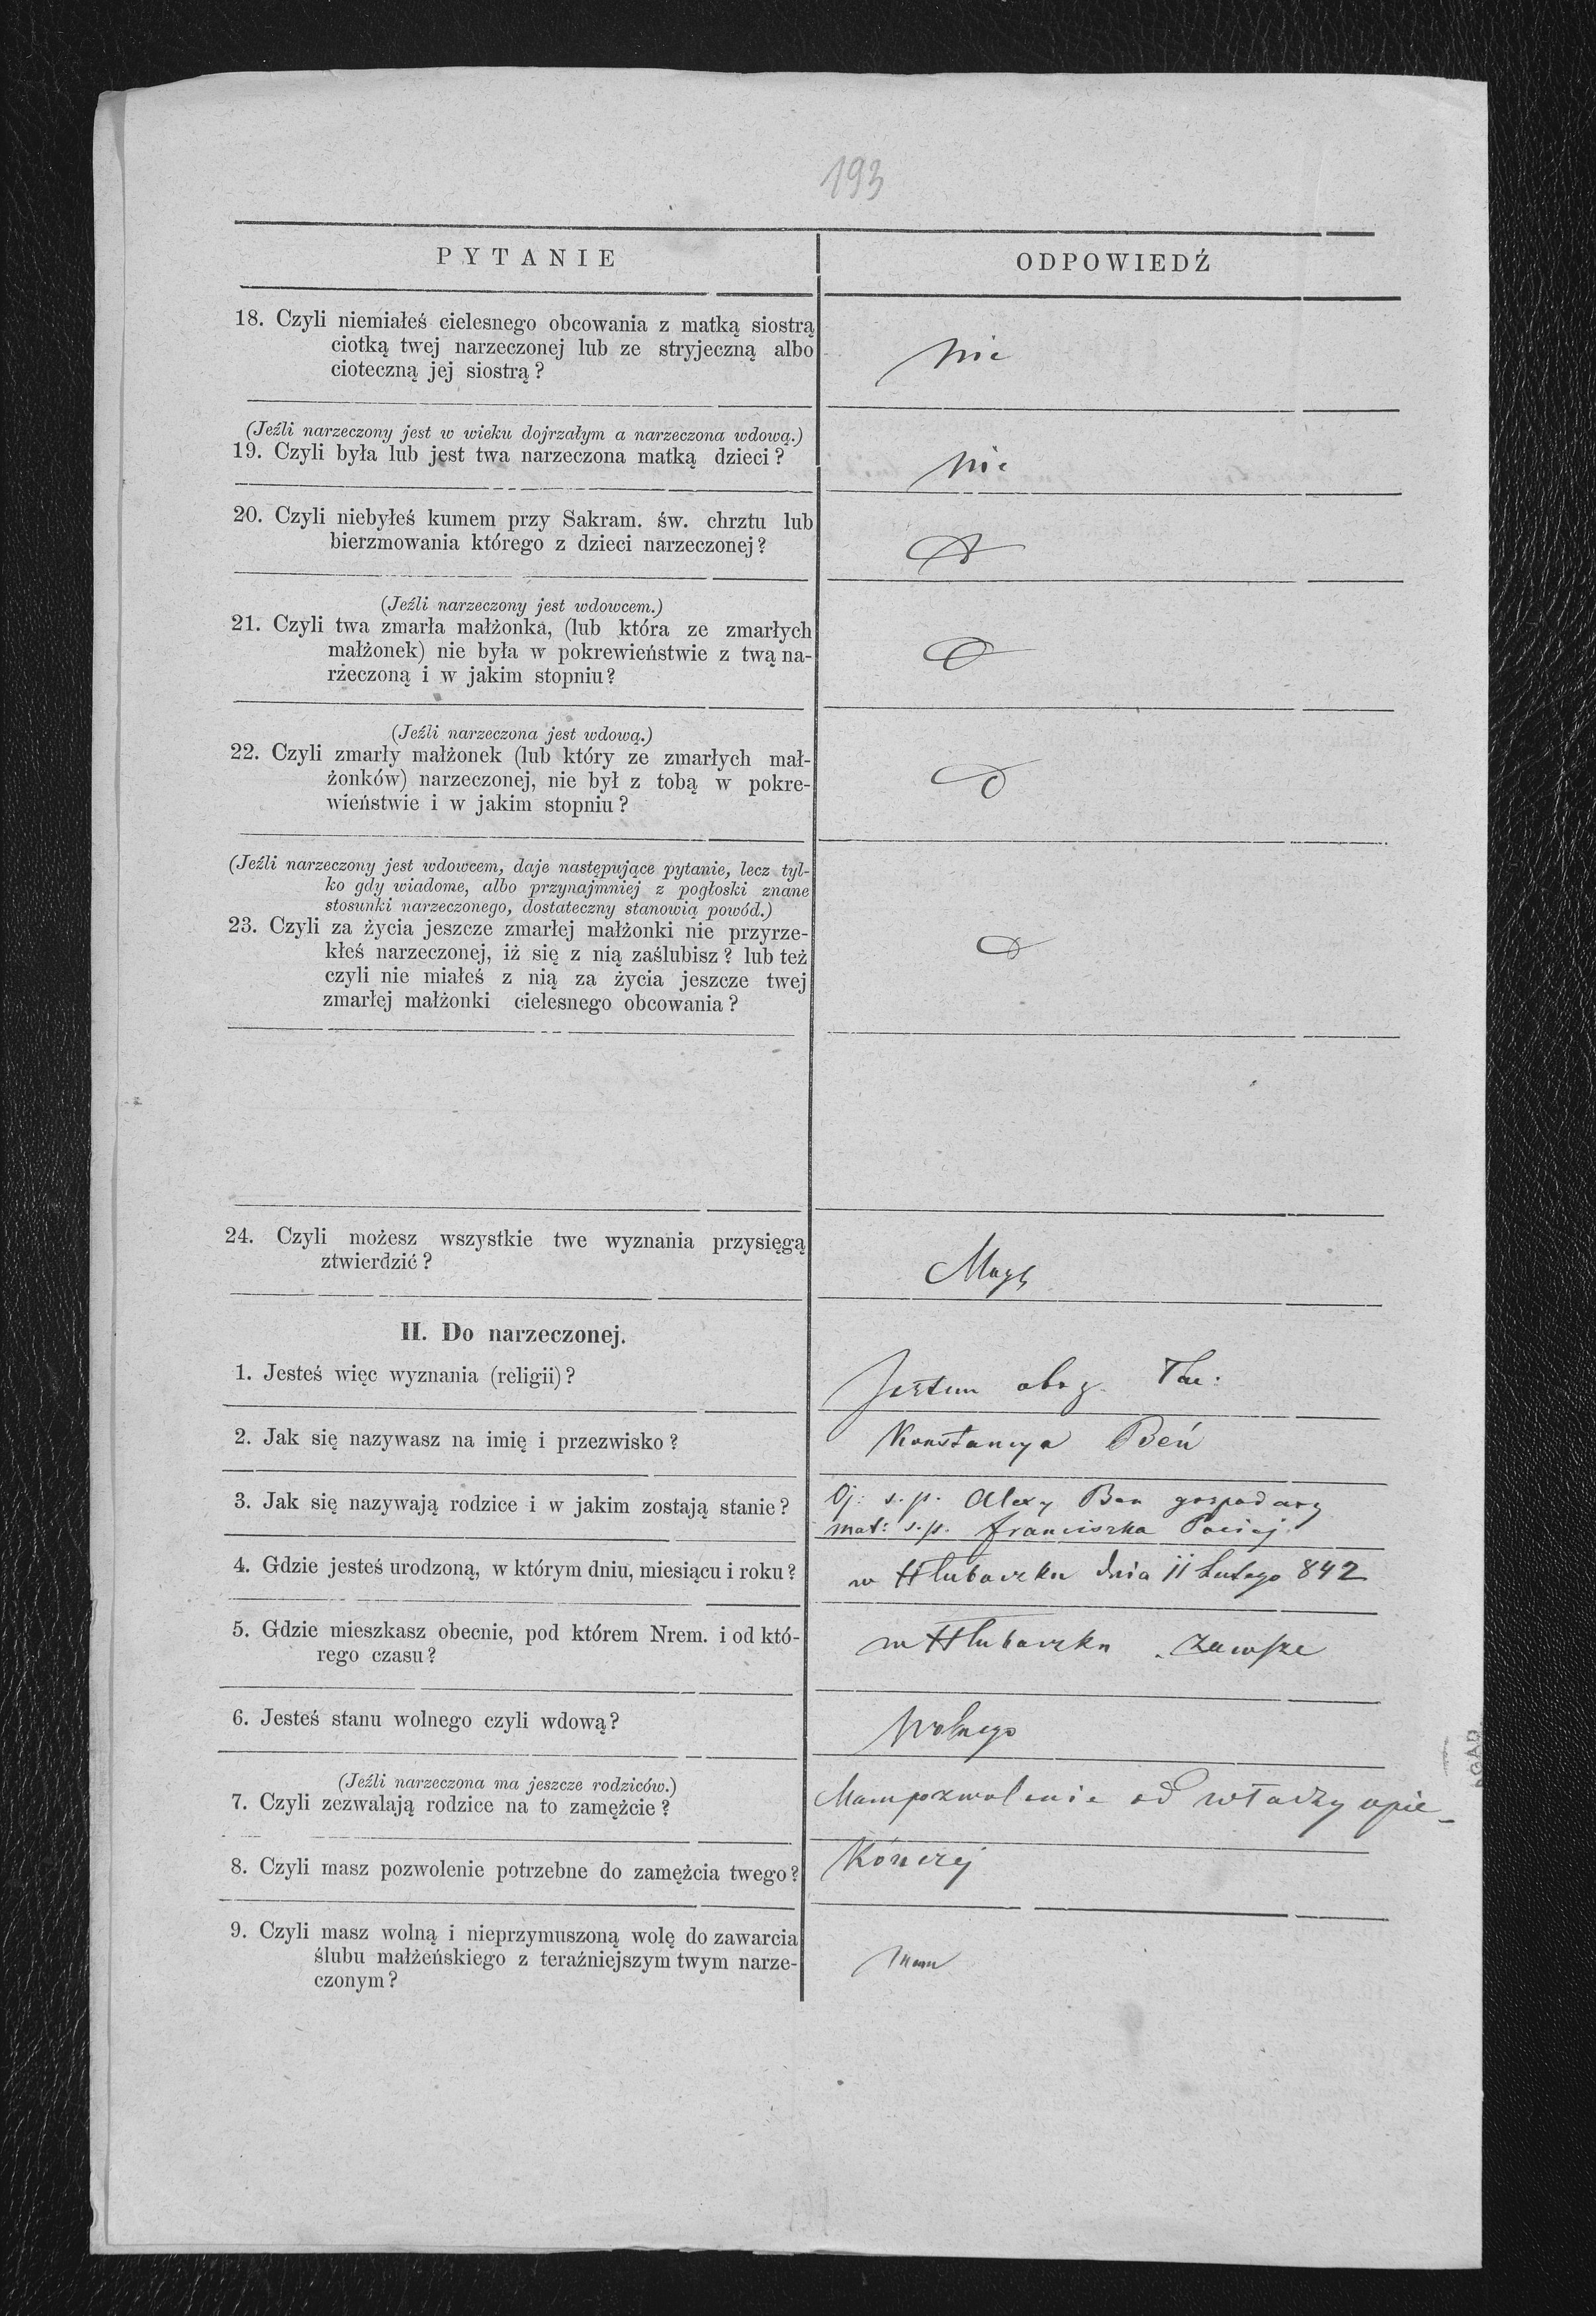 193
PYTANIE
ODPOWIEDŹ
18. Czyli niemiałeś cielesnego obcowania z matką siostrą
ciotką twej narzeczonej lub ze stryjeczną albo
cioteczną jej siostrą?
nie
(Jeźli narzeczony jest w wieku dojrzałym a narzeczona wdową.)
19. Czyli była lub jest twa narzeczona matką dzieci?
nie
20. Czyli niebyłeś kumem przy Sakram. św. chrztu lub
bierzmowania którego z dzieci narzeczonej?
(Jeźli narzeczony jest wdowcem.)
21. Czyli twa zmarła małżonka, (lub która ze zmarłych
małżonek) nie była w pokrewieństwie z twą na-
rzeczoną i w jakim stopniu?
(Jeźli narzeczona jest wdową.)
22. Czyli zmarły małżonek (lub który ze zmarłych mał-
żonków) narzeczonej, nie był z tobą w pokre-
wieństwie i w jakim stopniu?
(Jeźli narzeczony jest wdowcem, daje następujące pytanie, lecz tyl-
ko gdy wiadome, albo przynajmniej z pogłoski znane
stosunki narzeczonego, dostateczny stanowią powód.)
23. Czyli za życia jeszcze zmarłej małżonki nie przyrze-
kłeś narzeczonej, iż się z nią zaślubisz? lub też
czyli nie miałeś z nią za życia jeszcze twej
zmarłej małżonki cielesnego obcowania?
24. Czyli możesz wszystkie twe wyznania przysięgą
ztwierdzić?
Mogę
II. Do narzeczonej.
1. Jesteś więc wyznania (religii)?
Jestem obrz. łac:
2. Jak się nazywasz na imię i przezwisko?
Konstancya Beń
3. Jak się nazywają rodzice i w jakim zostają stanie?
Oj: s.p. Alexy Ben gospodarz
mat: s.p. Franciszka Paciej
4. Gdzie jesteś urodzoną, w którym dniu, miesiącu i roku?
w Hłuboczku dnia 11 Lutego 842
5. Gdzie mieszkasz obecnie, pod którem Nrem. i od któ-
rego czasu?
w Hłuboczku zawsze
6. Jesteś stanu wolnego czyli wdową?
Wolnego
(Jeźli narzeczona ma jeszcze rodziców.)
7. Czyli zezwalają rodzice na to zamężcie?
Mam pozwolenie od władzy opie-
8. Czyli masz pozwolenie potrzebne do zamężcia twego?
kónczej
9. Czyli masz wolną i nieprzymuszoną wolę do zawarcia
ślubu małżeńskiego z teraźniejszym twym narze-
czonym?
mam
AGAD